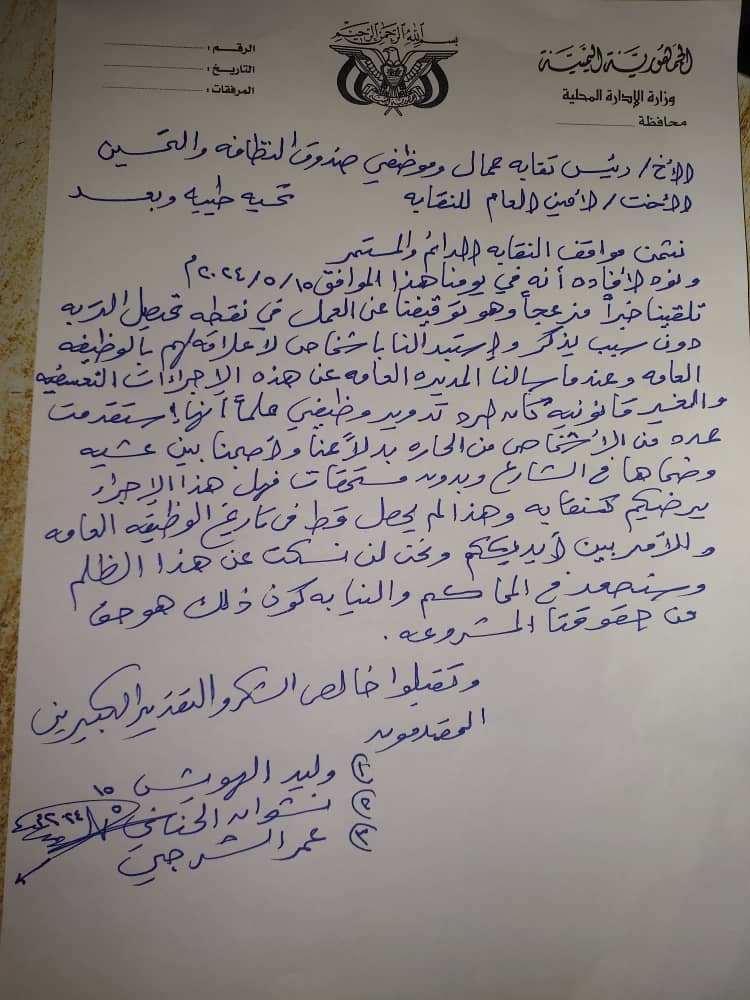 بسم الله الرحمن الرحيم
الجمهورية اليمنية
وزارة الإدارة المحلية
محافظة
الرقم :
التاريخ :
المرفقات :
الأخ / رئيس نقابه عمال وموظفي صندوق النظافه والتحسين
الأخت / الأمين العام للنقابه تحيه طيبه وبعد
نثمن مواقف النقابه الدائم والمستمر
ونود الإفاده أنه في يومنا هذا الموافق ١٥/٥/٢٠٢٤م
تلقينا خبراً مزعجاً وهو توقيفنا عن العمل في نقطه تحصيل
دون سبب يذكر وإستبدالنا باشخاص لا علاقه لهم بالوظيفه
العامه وعندما سالنا المديره العامه عن هذه الإجراءات التعسفيه
والغير قانونيه كان تدوير وظيفي علماً أنها إستقدمت
عدد من الأشخاص من الحاره بدلاً عنا وأصبحنا بين عشيه
وضحاها في الشارع وبدون مستحقات فهل هذا الإجراء
يرضيكم كنقابه وهذا لم يحصل قط في تاريخ الوظيفه العامه
والأمر بين أيديكم ونحن لن نسكت عن هذا الظلم
وسنصعد في المحاكم والنيابه كون ذلك هو حق
من حقوقنا المشروعه .
وتقبلوا خالص الشكر والتقدير الكبيرين
المقدمون
وليد الهويش
نشوان
عمر الشرجبي
١٥/٥/٢٠٢٤